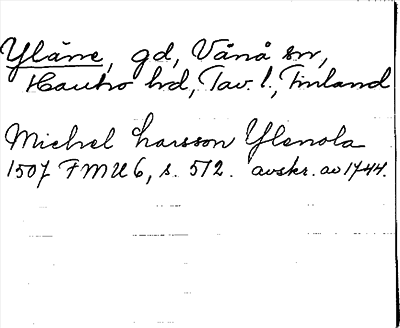 Yläne, gd, Vånå sn,
Hauho hd, Tav. l., Finland
Michel Larsson Ylenola
1507 FMU 6, s. 512. avskr. av 1744.